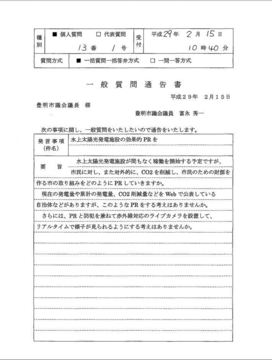 種別
■ 個人質問 □ 代表質問
13番 1号
受付
平成29年 2月 15日
10時40分
質問方式
■ 一括質問一括答弁方式 □ 一問一答方式
一般質問通告書
平成29年 2月15日
豊明市議会議長 様
豊明市議会議員 富永 秀一
次の事項に関し、一般質問をいたしたいので通告をします。
発言事項(件名)
水上太陽光発電施設の効果的PRを
要旨
水上太陽光発電施設が間もなく稼働を開始する予定ですが、
市民に対し、また対外的に、CO2を削減し、市民のための財源を
作る市の取り組みをどのようにPRしていきますか。
現在の発電量や累計の発電量、CO2削減量などをWebで公表している
自治体などがありますが、このようなPRをする考えはありませんか。
さらには、PRと防犯を兼ねて赤外線対応のライブカメラを設置して、
リアルタイムで様子が見られるようにする考えはありませんか。